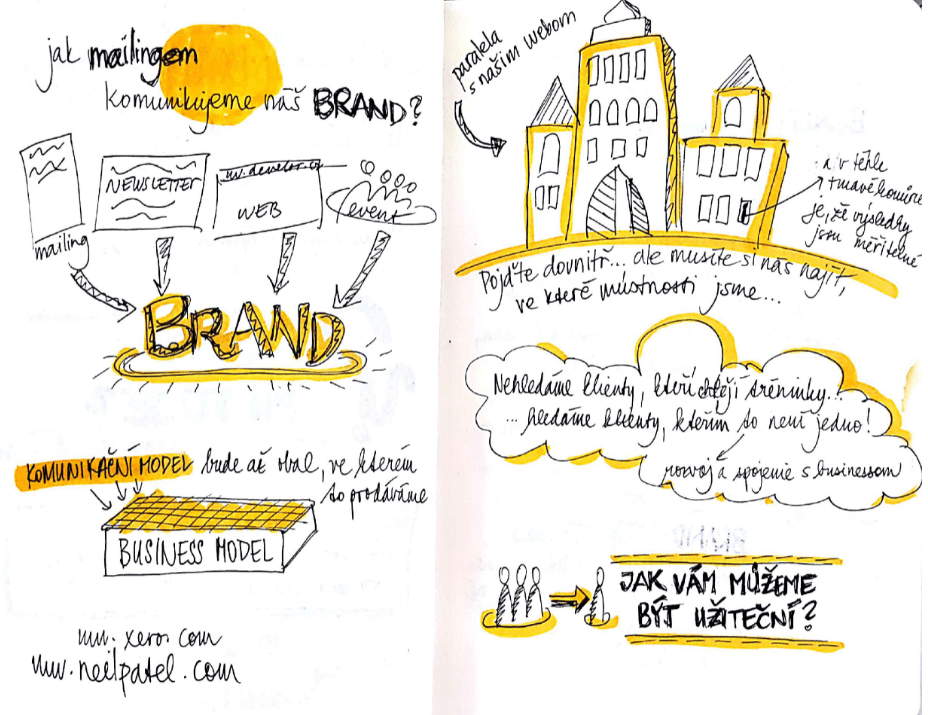 jak mailingem
komunikujeme náš BRAND?
mailing
NEWSLETTER
WEB
event
BRAND
KOMUNIKAČNÍ MODEL bude až obal, ve kterém
to prodáváme
BUSINESS MODEL
www.xerox.com
www.neilpatel.com
paralela
s našim webom
a v téhle
tmavé komůrce
je, že výsledky
jsou měřitelné
Pojďte dovnitř... ale musíte si nás najít,
ve které místnosti jsme...
Nehledáme klienty, kteří chtějí tréninky...
... hledáme klienty, kterým to není jedno!
rozvoj a spojenie s businessom
JAK VÁM MŮŽEME
BÝT UŽITEČNÍ?